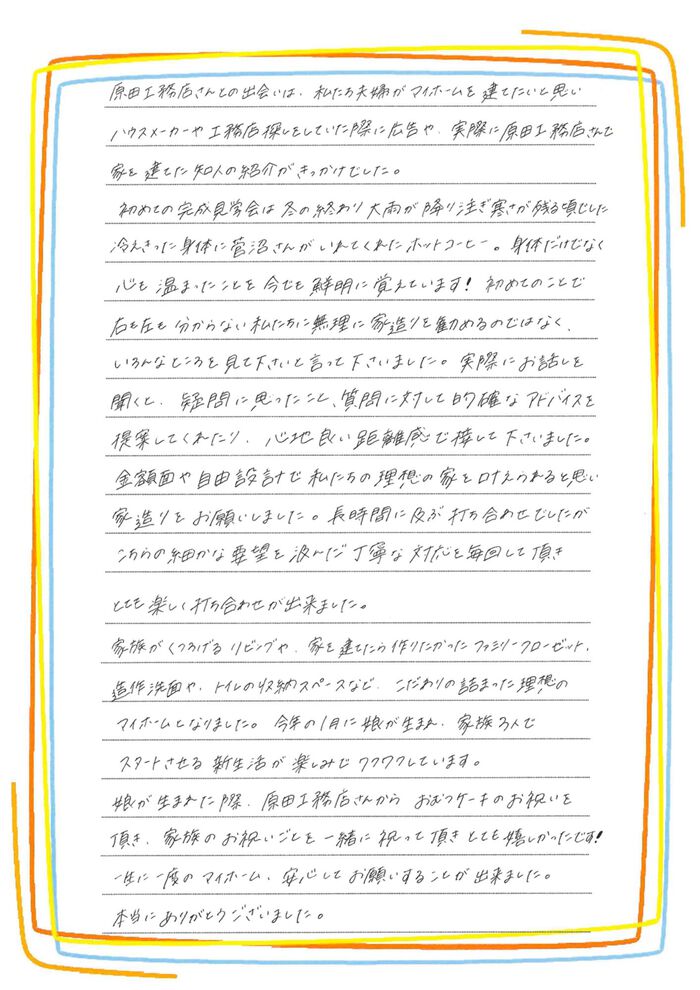 原田工務店さんとの出会いは、私たち夫婦がマイホームを建てたいと思い
ハウスメーカーや工務店探しをしていた際に広告や、実際に原田工務店さんで
家を建てた知人の紹介がきっかけでした。
初めての完成見学会は冬の終わり大雨が降り注ぎ寒さが残る頃でした
冷えきった身体に菅沼さんがいれてくれたホットコーヒー。身体だけでなく
心も温まったことを今でも鮮明に覚えています!初めてのことで
右も左も分からない私たちに無理に家造りを勧めるのではなく、
いろんなところを見て下さいと言って下さいました。実際にお話しを
聞くと、疑問に思ったこと、質問に対して的確なアドバイスを
提案してくれたり、心地良い距離感で接して下さいました。
金額面や自由設計で私たちの理想の家を叶えられると思い
家造りをお願いしました。長時間に及ぶ打ち合わせでしたが
こちらの細かな要望を汲んだ丁寧な対応を毎回して頂き
とても楽しく打ち合わせが出来ました。
家族がくつろげるリビングや、家を建てたら作りたかったファミリークローゼット、
造作洗面や、トイレの収納スペースなど、こだわりの詰まった理想の
マイホームとなりました。今年の1月に娘が生まれ、家族3人で
スタートさせる新生活が楽しみでワクワクしています。
娘が生まれた際、原田工務店さんからおむつケーキのお祝いを
頂き、家族のお祝いごとを一緒に祝って頂きとても嬉しかったです!
一生に一度のマイホーム、安心してお願いすることが出来ました。
本当にありがとうございました。